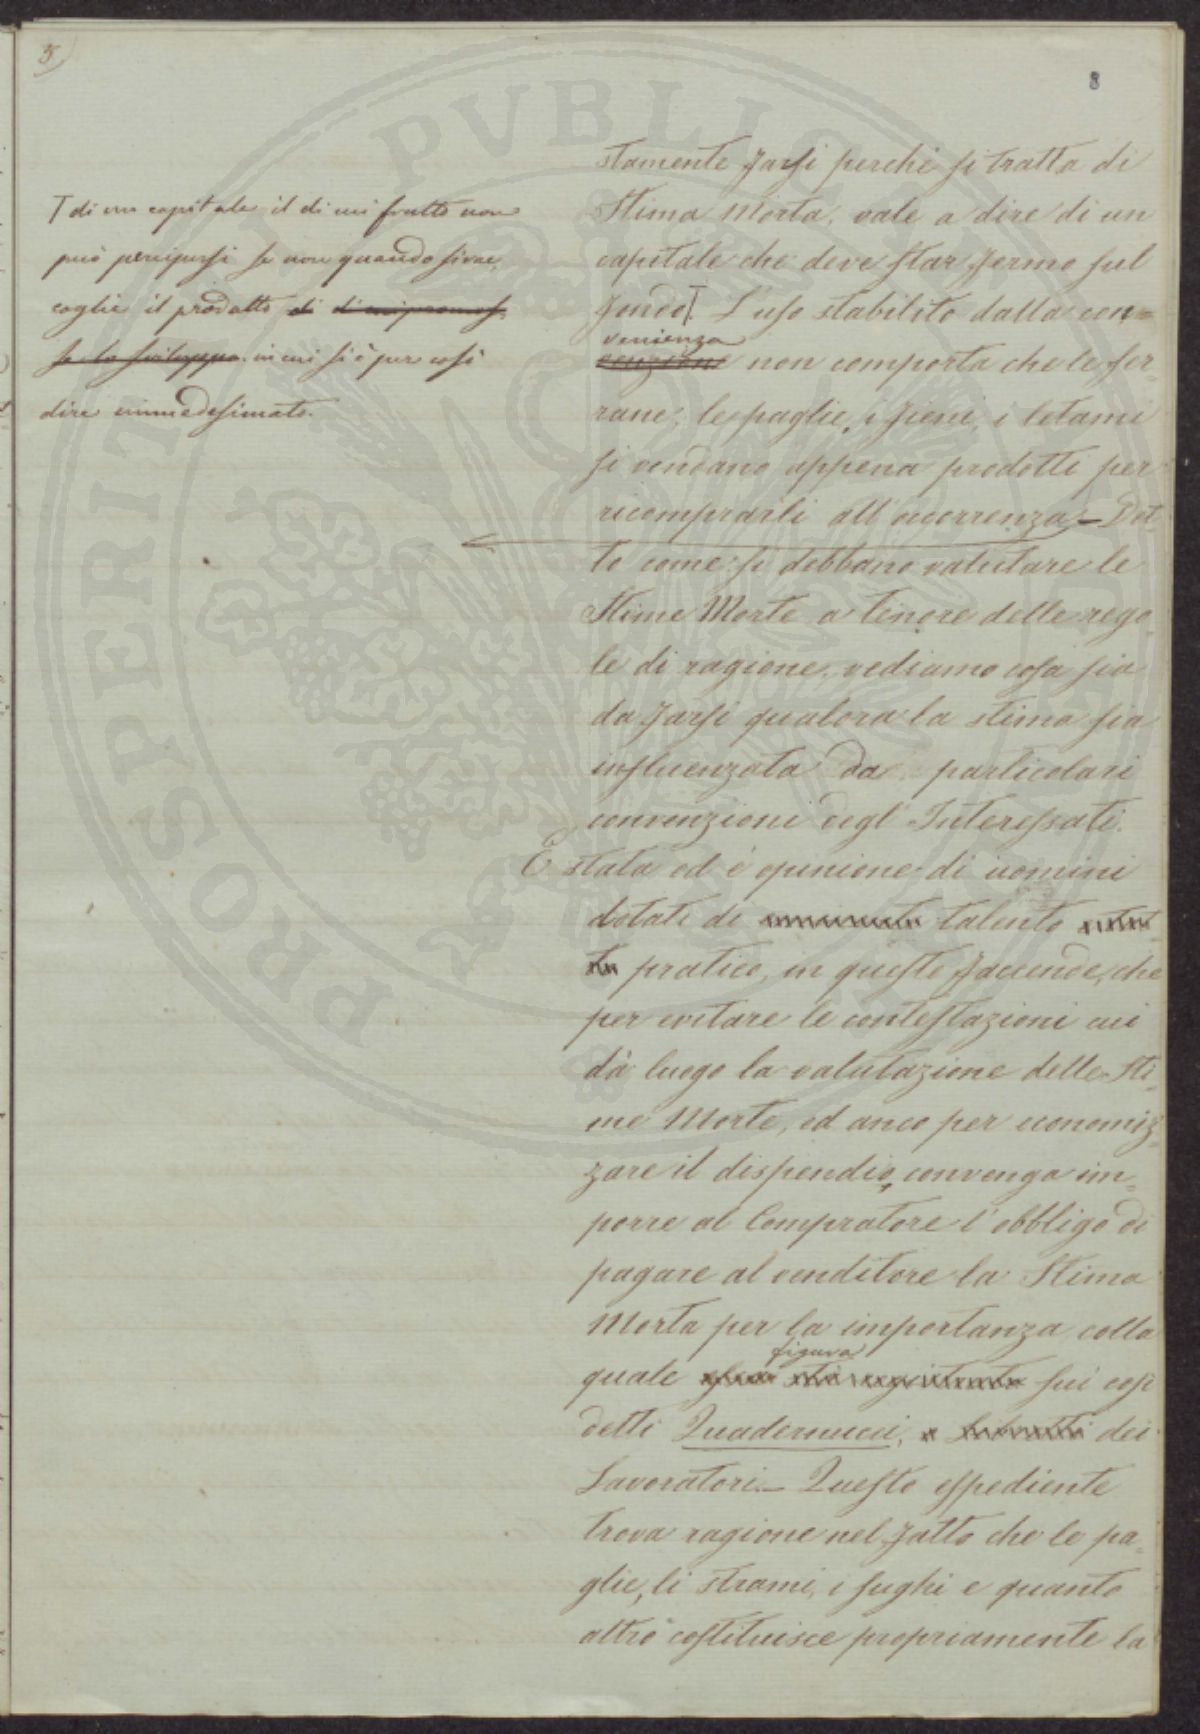 5)
8
T di un capitale il di cui frutto non
può percipersi se non quando si rac
coglie il prodotto di
in cui si è per così
dire immedesimato.
stamente farsi perchè si tratta di
Stima Morta, vale a dire di un
capitale che deve star fermo sul
fondo T L'uso stabilito dalla con=
venienza
venzione non comporta che le fer-
rane, le paglie, i fieni, i letami
si vendano appena prodotti per
ricomprarli all'occorrenza – Det
to come si debbano valutare le
Stime Morte a tenore delle rego
le di ragione, vediamo cosa sia
da farsi qualora la stima sia
influenzata da particolari
convenzioni degl'Interessati.
È stata ed è opinione di uomini
dotati di talento
pratico, in queste faccende, che
per evitare le contestazioni cui
dà luogo la valutazione delle Sti-
me Morte, ed anco per economiz-
zare il dispendio, convenga im=
porre al Compratore l'obbligo di
pagare al venditore la Stima
Morta per la importanza colla
figura
quale sui così
detti Quadernucci, dei
Lavoratori – Questo espediente
trova ragione nel fatto che le pa=
glie, li strami, i sughi e quanto
altro costituisce propriamente la